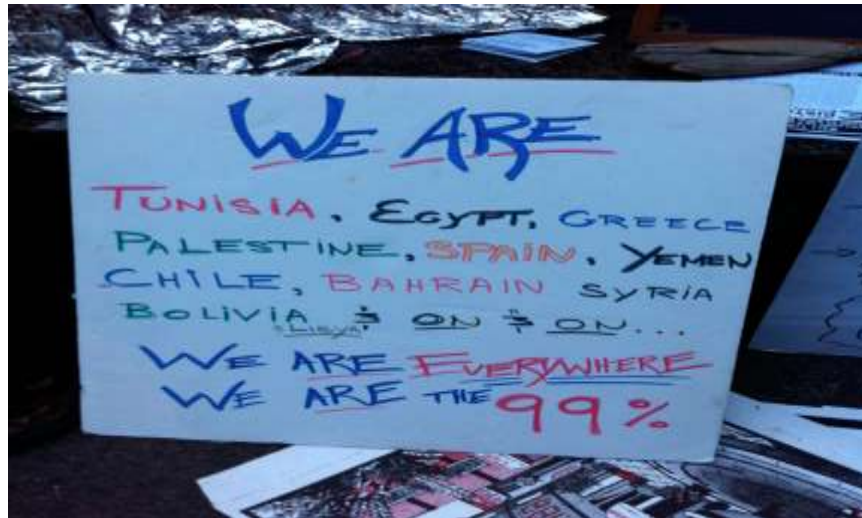 WE ARE
TUNISIA, EGYPT, GREECE
PALESTINE, SPAIN, YEMEN
CHILE, BAHRAIN SYRIA
BOLIVIA & ON & ON...
"LIBYA"
WE ARE EVERYWHERE
WE ARE THE 99%